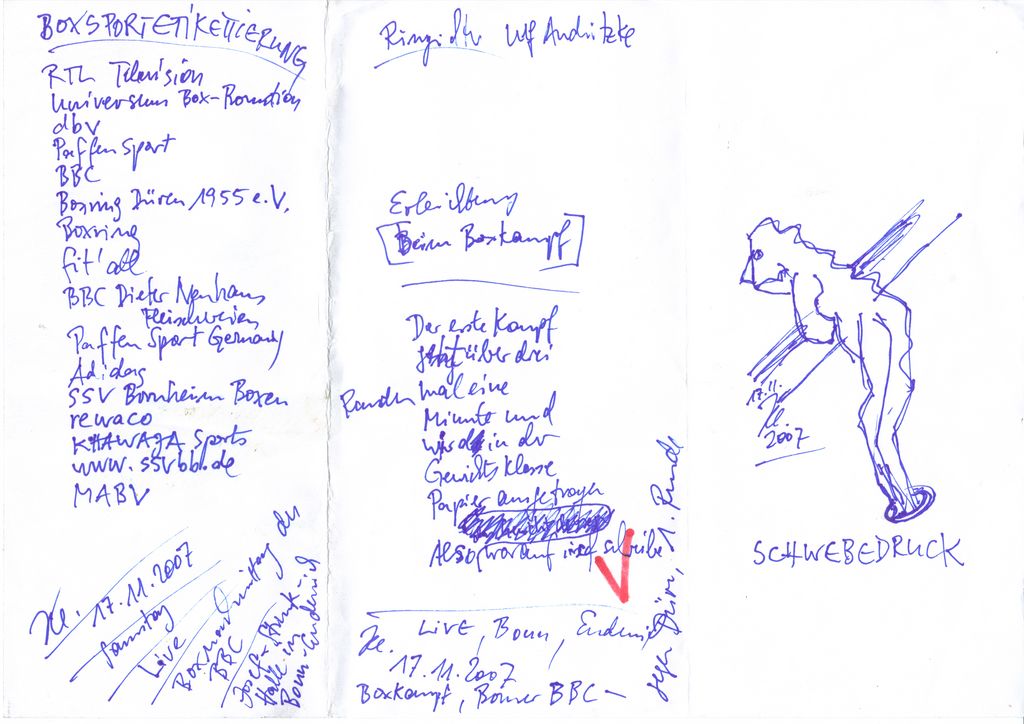 BOXSPORTETIKETTIERUNG
RTL Television
Universum Box-Promotion
dbv
Paffen Sport
BBC
Boxring Düren 1955 e.V.
Boxring
fit'all
BBC Dieter Neuhaus
Fleischwaren
Paffen Sport Germany
Adidas
SSV Bornheim Boxen
rewaco
KHAWAJA Sports
www.ssvbb.de
MABV
17.11.2007
Samstag
Live
Boxnachmittag des
BBC
Josef-Strunk-
Halle in
Bonn-Endenich
Ulf Andritzke
Beim Boxkampf
Der erste Kampf
über drei
Runden mal eine
Minute und
wird in der
Gewichtsklasse
Papier ausgetragen
Also worauf ich schreibe
Live, Bonn, Endenich
17.11.2007
Boxkampf, Bonner BBC –
gegen Düren, 1. Runde
17.11.
2007
SCHWEBEDRUCK